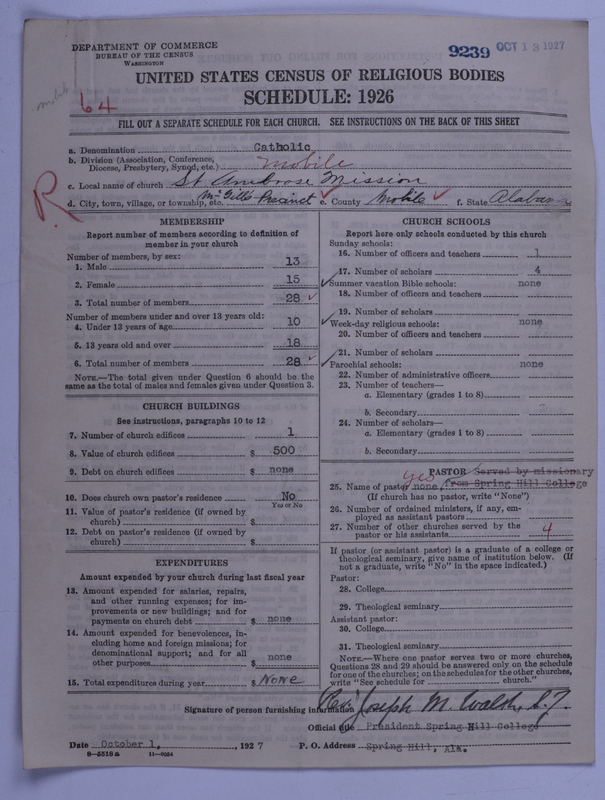 DEPARTMENT OF COMMERCE
BUREAU OF THE CENSUS
WASHINGTON
9239 OCT 13 1927
UNITED STATES CENSUS OF RELIGIOUS BODIES
SCHEDULE: 1926
mobile
64
FILL OUT A SEPARATE SCHEDULE FOR EACH CHURCH. SEE INSTRUCTIONS ON THE BACK OF THIS SHEET
R
a. Denomination Catholic
b. Division (Association, Conference,
Diocese, Presbytery, Synod, etc.) Mobile
c. Local name of church St Ambrose Mission
d. City, town, village, or township, etc. McGills Precinct e. County Mobile f. State Alabama
MEMBERSHIP
Report number of members according to definition of
member in your church
Number of members, by sex:
1. Male 13
2. Female 15
3. Total number of members 28
Number of members under and over 13 years old:
4. Under 13 years of age 10
5. 13 years old and over 18
6. Total number of members 28
NOTE.—The total given under Question 6 should be the
same as the total of males and females given under Question 3.
CHURCH BUILDINGS
See instructions, paragraphs 10 to 12
7. Number of church edifices 1
8. Value of church edifices $ 500
9. Debt on church edifices $ none
10. Does church own pastor's residence No
Yes or No
11. Value of pastor's residence (if owned by
church) $
12. Debt on pastor's residence (if owned by
church) $
EXPENDITURES
Amount expended by your church during last fiscal year
13. Amount expended for salaries, repairs,
and other running expenses; for im-
provements or new buildings; and for
payments on church debt $ none
14. Amount expended for benevolences, in-
cluding home and foreign missions; for
denominational support; and for all
other purposes $ none
15. Total expenditures during year $ None
CHURCH SCHOOLS
Report here only schools conducted by this church
Sunday schools:
16. Number of officers and teachers 1
17. Number of scholars 4
Summer vacation Bible schools: none
18. Number of officers and teachers
19. Number of scholars
Week-day religious schools: none
20. Number of officers and teachers
21. Number of scholars
Parochial schools: none
22. Number of administrative officers
23. Number of teachers—
a. Elementary (grades 1 to 8)
b. Secondary
24. Number of scholars—
a. Elementary (grades 1 to 8)
b. Secondary
PASTOR Served by missionary
yes
25. Name of pastor none, from Spring Hill College
(If church has no pastor, write "None")
26. Number of ordained ministers, if any, em-
ployed as assistant pastors
27. Number of other churches served by the
pastor or his assistants 4
If pastor (or assistant pastor) is a graduate of a college or
theological seminary, give name of institution below. (If
not a graduate, write "No" in the space indicated.)
Pastor:
28. College
29. Theological seminary
Assistant pastor:
30. College
31. Theological seminary
NOTE.—Where one pastor serves two or more churches,
Questions 28 and 29 should be answered only on the schedule
for one of the churches; on the schedules for the other churches,
write "See schedule for church."
Signature of person furnishing information Rev. Joseph M. Walsh, S.J.
Official title President Spring Hill College
Date October 1, 1927 P. O. Address Spring Hill, Ala.
8-5519a 11-9054